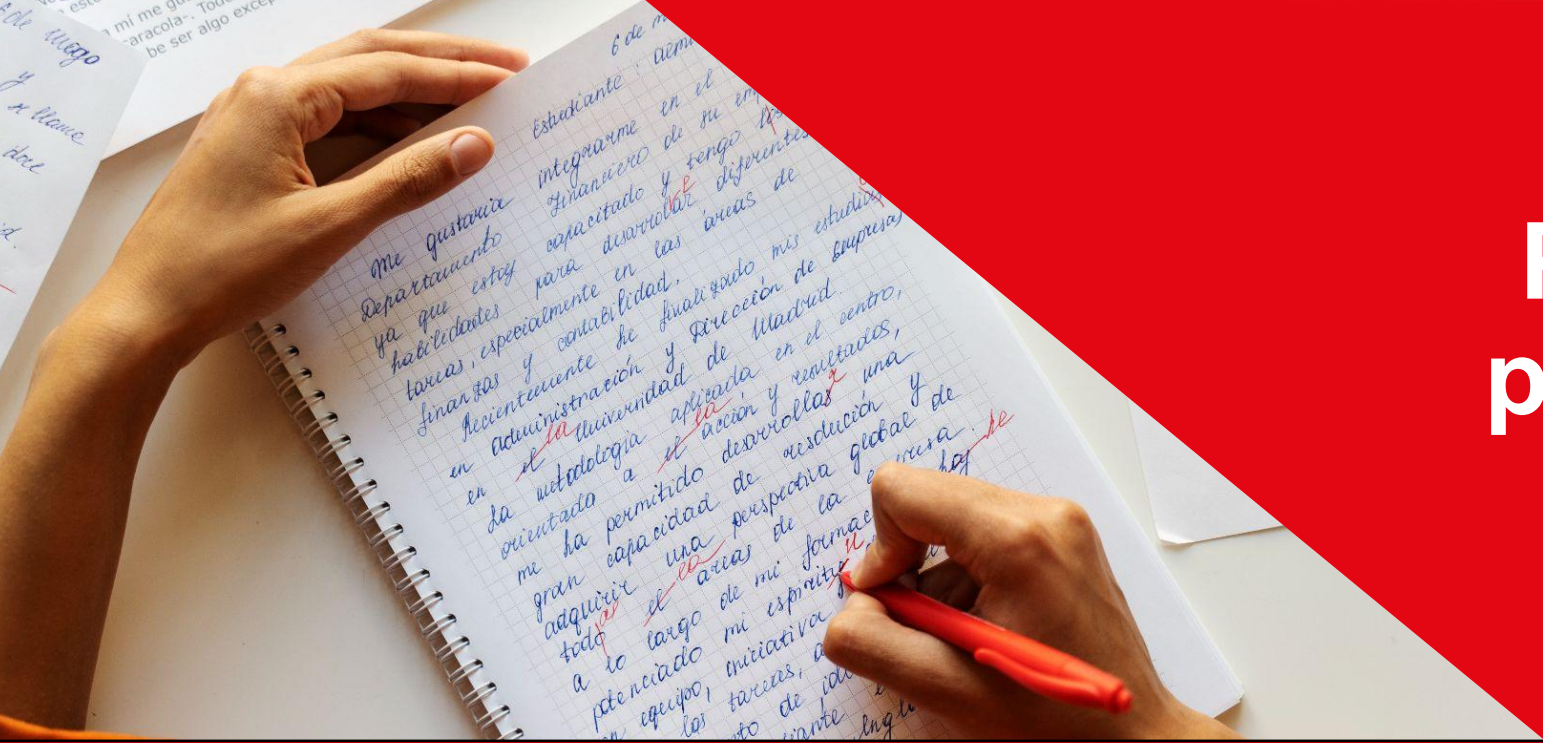 de luego
y
se llame
doce
a mí me gu
aracola-. Tod
be ser algo excep
6 de m
Estudiante
Me gustaría integrarme en el
Departamento Financiero de su em
ya que estoy capacitado y tengo las
habilidades para desarrollar diferentes
tareas, especialmente en las áreas de
finanzas y contabilidad.
Recientemente he finalizado mis estudios
en administración y Dirección de Empresas
en el la Universidad de Madrid.
La metodología aplicada en el centro,
orientada a el la acción y resultados,
me ha permitido desarrollas r una
gran capacidad de resolución y
adquirir una perspectiva global de
todo as el la areas de la empresa.
a lo largo de mi formac hoy he
potenciado mi espíritu
equipo, iniciativa
las tareas, a
nto de ide
iante
P
p